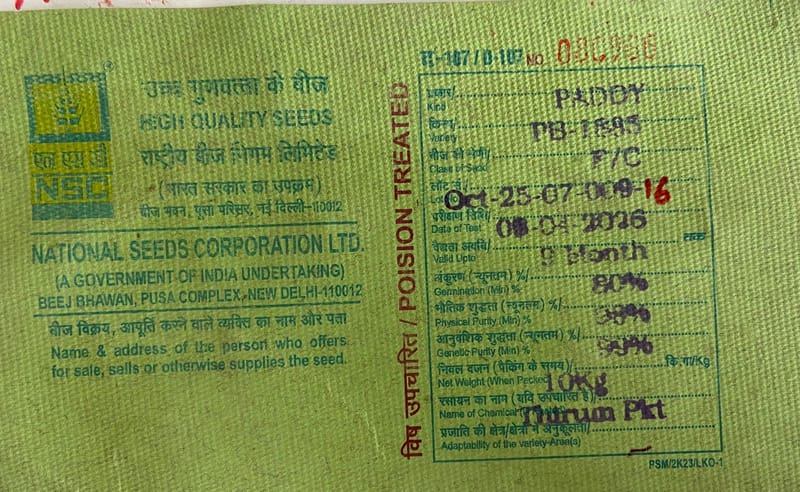 ®
एन एस सी
NSC
उच्च गुणवत्ता के बीज
HIGH QUALITY SEEDS
राष्ट्रीय बीज निगम लिमिटेड
(भारत सरकार का उपक्रम)
बीज भवन, पूसा परिसर, नई दिल्ली-110012
NATIONAL SEEDS CORPORATION LTD.
(A GOVERNMENT OF INDIA UNDERTAKING)
BEEJ BHAWAN, PUSA COMPLEX, NEW DELHI-110012
बीज विक्रय, आपूर्ति करने वाले व्यक्ति का नाम और पता
Name & address of the person who offers
for sale, sells or otherwise supplies the seed.
विष उपचारित / POISION TREATED
107 / D-107 NO.
प्रकार/ PADDY
Kind
किस्म/
Variety
बीज की श्रेणी/ F/C
Class of Seed
लॉट सं./ Oct-25-07-009-16
परीक्षण तिथि/
Date of Test 04-2026
वैद्यता अवधि/ तक
Valid Upto 9 Month
अंकुरण (न्यूनतम) %/ 80%
Germination (Min) %
भौतिक शुद्धता (न्यूनतम) %/ 98%
Physical Purity (Min) %
आनुवंशिक शुद्धता (न्यूनतम) %/
Genetic Purity (Min) %
निवल वजन (पैकिंग के समय)/ कि.ग्रा/Kg
Net Weight (When Packed) 10Kg
रसायन का नाम (यदि उपचारित है)/
Name of Chemical Thirum Pkt
प्रजाति की क्षेत्र/क्षेत्रों में अनुकूलता/
Adaptability of the variety-Area(s)
PSM/2K23/LKO-1